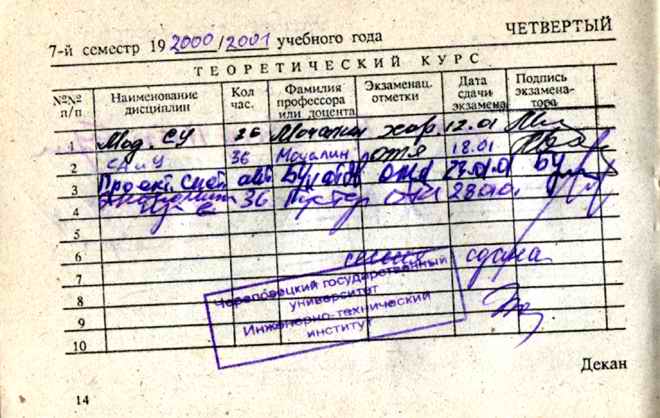 ЧЕТВЕРТЫЙ
7-й семестр 192000/2001 учебного года
ТЕОРЕТИЧЕСКИЙ КУРС
№№ п/п Наименование дисциплин Кол час. Фамилия профессора или доцента Экзаменац. отметки Дата сдачи экзамена Подпись экзамена-тора
1 Мод. СУ 26 Мочалин хор 12.01
2 САиУ 36 Мочалин отл 18.01
3 Проект. сист
4 36 28.01
5
6 сессия сдана
7
8
9
10
Череповецкий государственный
университет
Инженерно-технический
институт
Декан
14